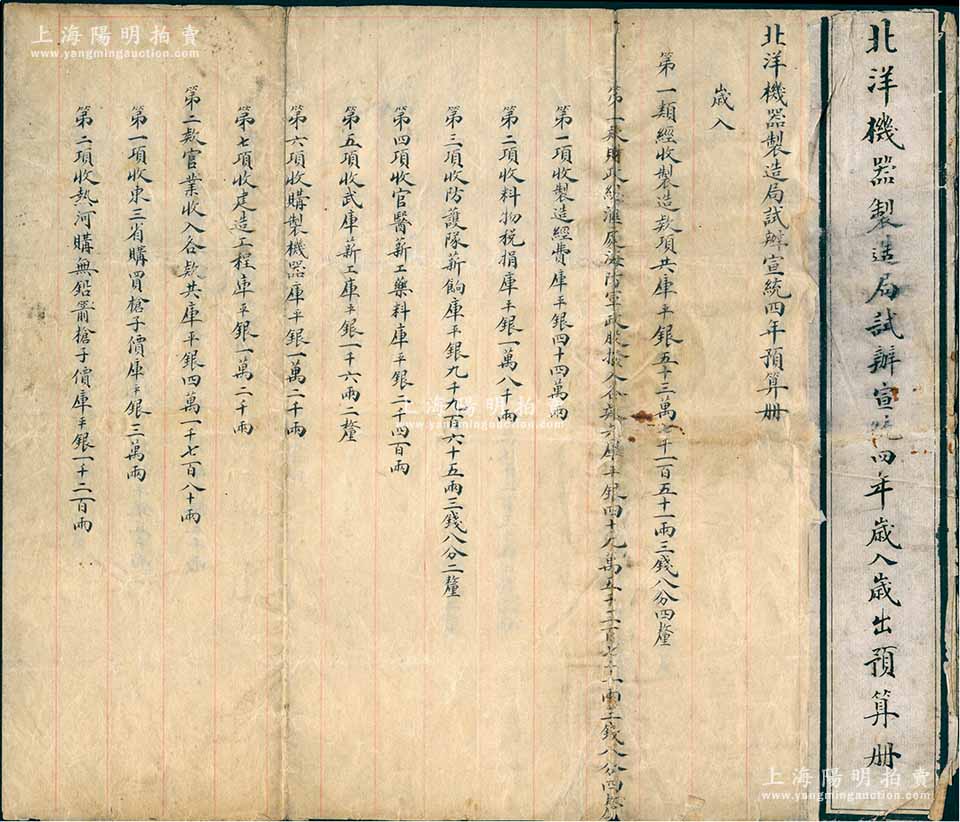 北洋機器製造局試辦宣統四年歲入歲出預算册
北洋機器製造局試辦宣統四年預算册
歲入
第一類經收製造款項共庫平銀五十三萬七千一百五十一兩三錢八分四釐
第一款財政總滙處海防軍政股撥入各款共庫平銀四十九萬五千三百七十一兩三錢八分四釐
第一項收製造經費庫平銀四十四萬兩
第二項收料物税捐庫平銀一萬八千兩
第三項收防護隊薪餉庫平銀九千九百六十五兩三錢八分二釐
第四項收官醫薪工藥料庫平銀二千四百兩
第五項收武庫薪工庫平銀一千六兩二釐
第六項收購製機器庫平銀一萬二千兩
第七項收建造工程庫平銀一萬二千兩
第二款官業收入各款共庫平銀四萬一千七百八十兩
第一項收東三省購買槍子價庫平銀三萬兩
第二項收熱河購無鉛箭槍子價庫平銀一千二百兩
上海陽明拍賣
www.yangmingauction.com
上海陽明拍賣
www.yangmingauction.com
上海陽明拍賣
www.yangmingauction.com
上海陽明拍賣
www.yangmingauction.com